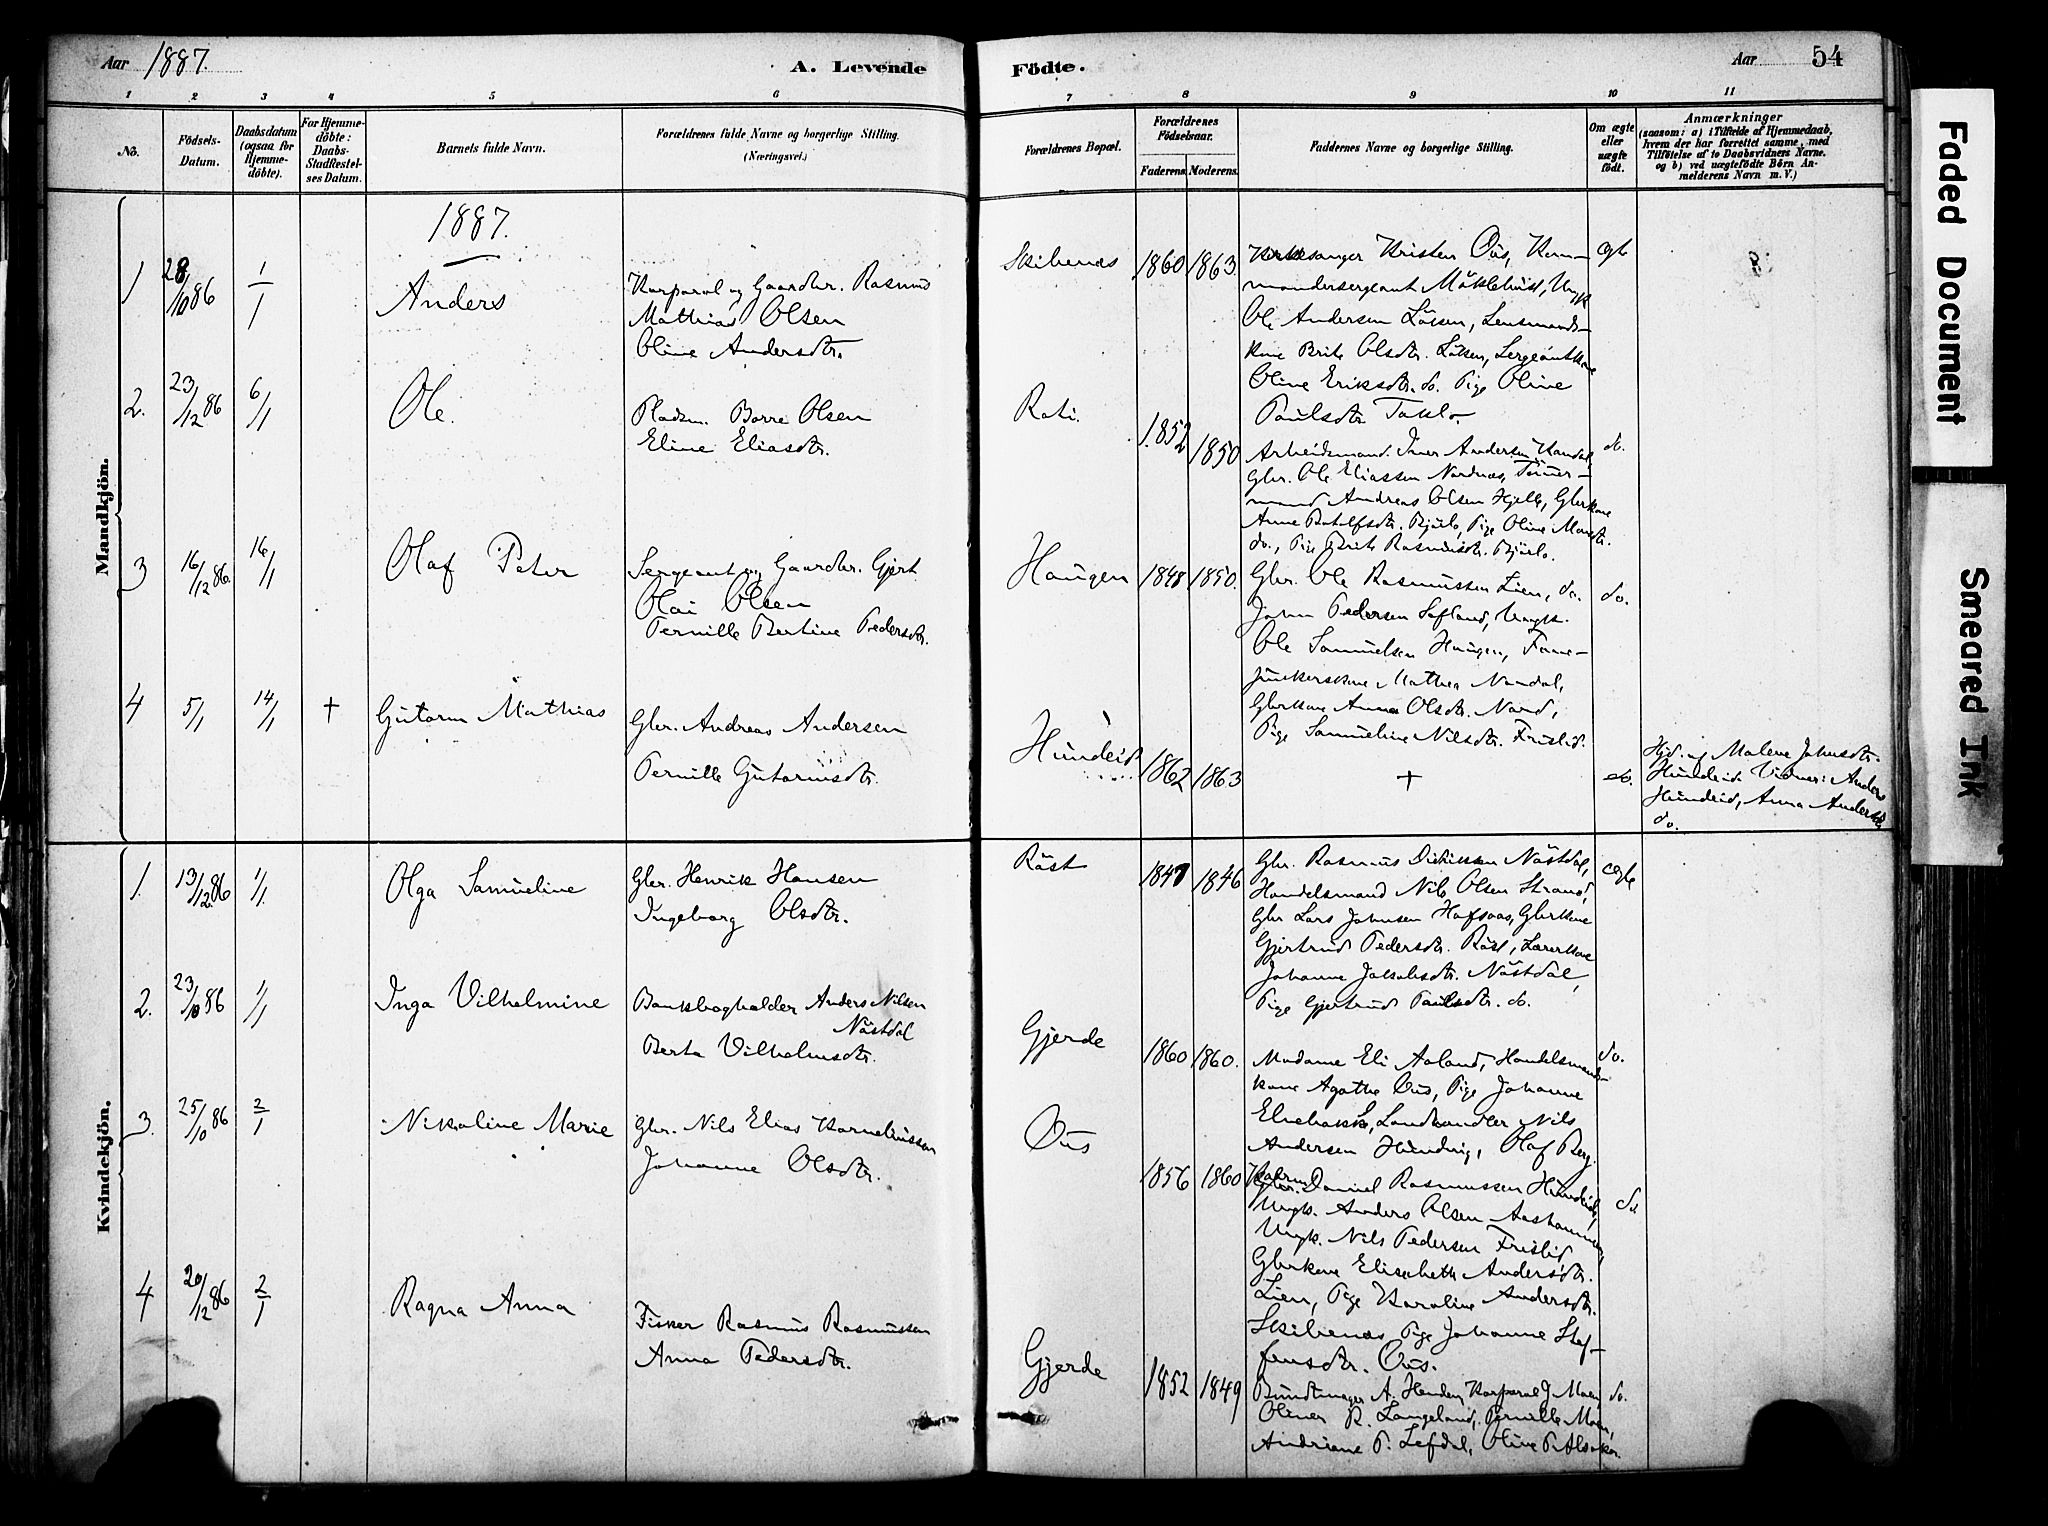 Aar 1887.
A. Levende Födte.
Aar 54
1 2 3 4 5 6 7 8 9 10 11
No.
Födsels-Datum.
Daabsdatum (ogsaa for Hjemme-döbte).
For Hjemme-döbte: Daabs-Stadfæstel-ses Datum.
Barnets fulde Navn.
Forældrenes fulde Navne og borgerlige Stilling.
(Næringsvei.)
Forældrenes Bopæl.
Forældrenes Födselsaar.
Faderens. Moderens.
Faddernes Navne og borgerlige Stilling.
Om ægte eller uægte födt.
Anmærkninger
(saasom: a) i Tilfælde af Hjemmedaab,
hvem der har forrettet samme, med
Tilföielse af to Daabsvidners Navne.
og b) ved uægtefödte Börn An-
melderens Navn m. V.)
Mandkjön.
1887.
1 28/10 86 1/1 Anders
Korporal og Gaardbr. Rasmus
Mathias Olsen
Oline Andersdtr.
Skibenæs 1860 1863.
Kirkesanger Kristen Ous, Kom-
mandersergeant Möklebust, Ungk
Ole Andersen Löken, Lensmands-
kone Brite Olsdtr. Löken, Sergeantkone
Oline Eriksdtr. do. Pige Oline
Paulsdtr Taklo
ægte
2. 23/12 86 6/1 Ole.
Pladsm. Borre Olsen
Eline Eliasdtr.
Roti. 1852 1850
Arbeidsmand Iver Andersen Kandal,
Gbr. Ole Eliassen Nordnæs, Tömmer-
mand Andreas Olsen Hjelle, Gbrkone
Anne Rotolfsdtr. Bjørlo, Pige Oline Monsdtr.
do., Pige Brite Rasmusdtr. Bjørlo.
do.
3 16/12 86. 16/1 Olaf Peter
Sergeant og Gaardbr. Gjert
Olai Olsen
Pernille Bertine Pedersdtr.
Haugen 1848 1850.
Gbr. Ole Rasmussen Lien, do.
John Pedersen Sefland, Ungk.
Ole Samuelsen Haugen, Fane-
junkerskone Mathea Nordal,
Gbrkone Anna Olsdtr. Nord,
Pige Samueline Nilsdtr. Frislid.
do.
4 5/1 14/1 + Gutorm Mathias
Gbr. Andreas Andersen
Pernille Gutormsdtr.
Hundeid 1862 1863
+
do.
Hjd. af Malene Johnsdtr.
Hundeid. Vidner: Anders
Hundeid, Anna Andersdtr
do.
Kvindekjön.
1. 13/12 86 1/1. Olga Samueline
Gbr. Henrik Hansen
Ingeborg Olsdtr.
Röst 1847 1846
Gbr. Rasmus Didriksen Nöstdal,
Handelsmand Nils Olsen Strand,
Gbr Lars Johnsen Hafsaas, Gbrkone
Gjertrud Pedersdtr. Röst, Lærerkone
Johanne Jakobsdtr. Nöstdal,
Pige Gjertrud Paulsdtr. do.
ægte
2. 23/10 86 1/1 Inga Vilhelmine
Bankbogholder Anders Nilsen
Nöstdal
Berta Vilhelmsdtr.
Gjerde 1860 1860.
Madame Eli Aaland, Handelsmands-
kone Agathe Ous, Pige Johanne
Elnebakk, Landhandler Nils
Andersen Hunding, Olaf Berg.
do.
3. 25/10 86 2/1 Nikoline Marie
Gbr. Nils Elias Korneliussen
Johanne Olsdtr.
Ous 1856 1860
Gbr. Daniel Rasmussen Hundeid,
Ungk. Anders Olsen Aashammer,
Ungk. Nils Pedersen Frislid,
Gbrkone Elisabeth Andersdtr.
Lien, Pige Karoline Andersdtr.
Skibenæs Pige Johanne Stef-
fensdtr. Ous.
do
4 20/12 86 2/1 Ragna Anna
Fisker Rasmus Rasmussen
Anna Pedersdtr.
Gjerde 1852 1849
Bundtmager A. Henden, Korporal J Moen,
Oliner R. Langeland, Pernille Moen,
Andriane P. Lefdal, Oline P. Alsaker.
do.
Faded Document
Smeared Ink